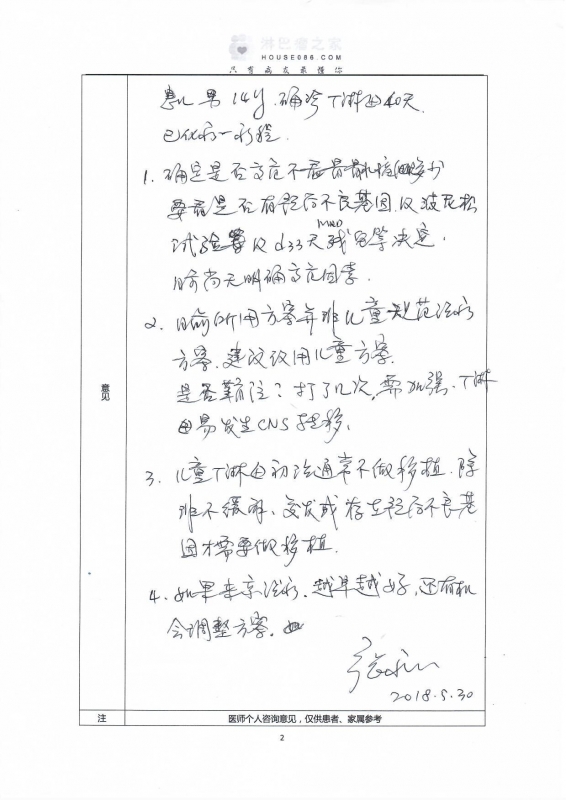 淋巴瘤之家
HOUSE086.COM
只有病友最懂你
患儿 男 14y. 确诊T淋母40天.
已化疗一疗程.
1. 确定是否高危不
要看是否有预后不良基因及泼尼松
MRD
试验及d33天残留等决定.
目前尚无明确高危因素.
2. 目前所用方案并非儿童规范治疗
方案. 建议改用儿童方案.
是否鞘注? 打了几次, 需加强. T淋
母易发生CNS转移.
意见
3. 儿童T淋母初治通常不做移植. 除
非不缓解、复发或存在预后不良基
因才需要做移植.
4. 如果来京治疗. 越早越好, 还有机
会调整方案.
2018.5.30
注 医师个人咨询意见，仅供患者、家属参考
2